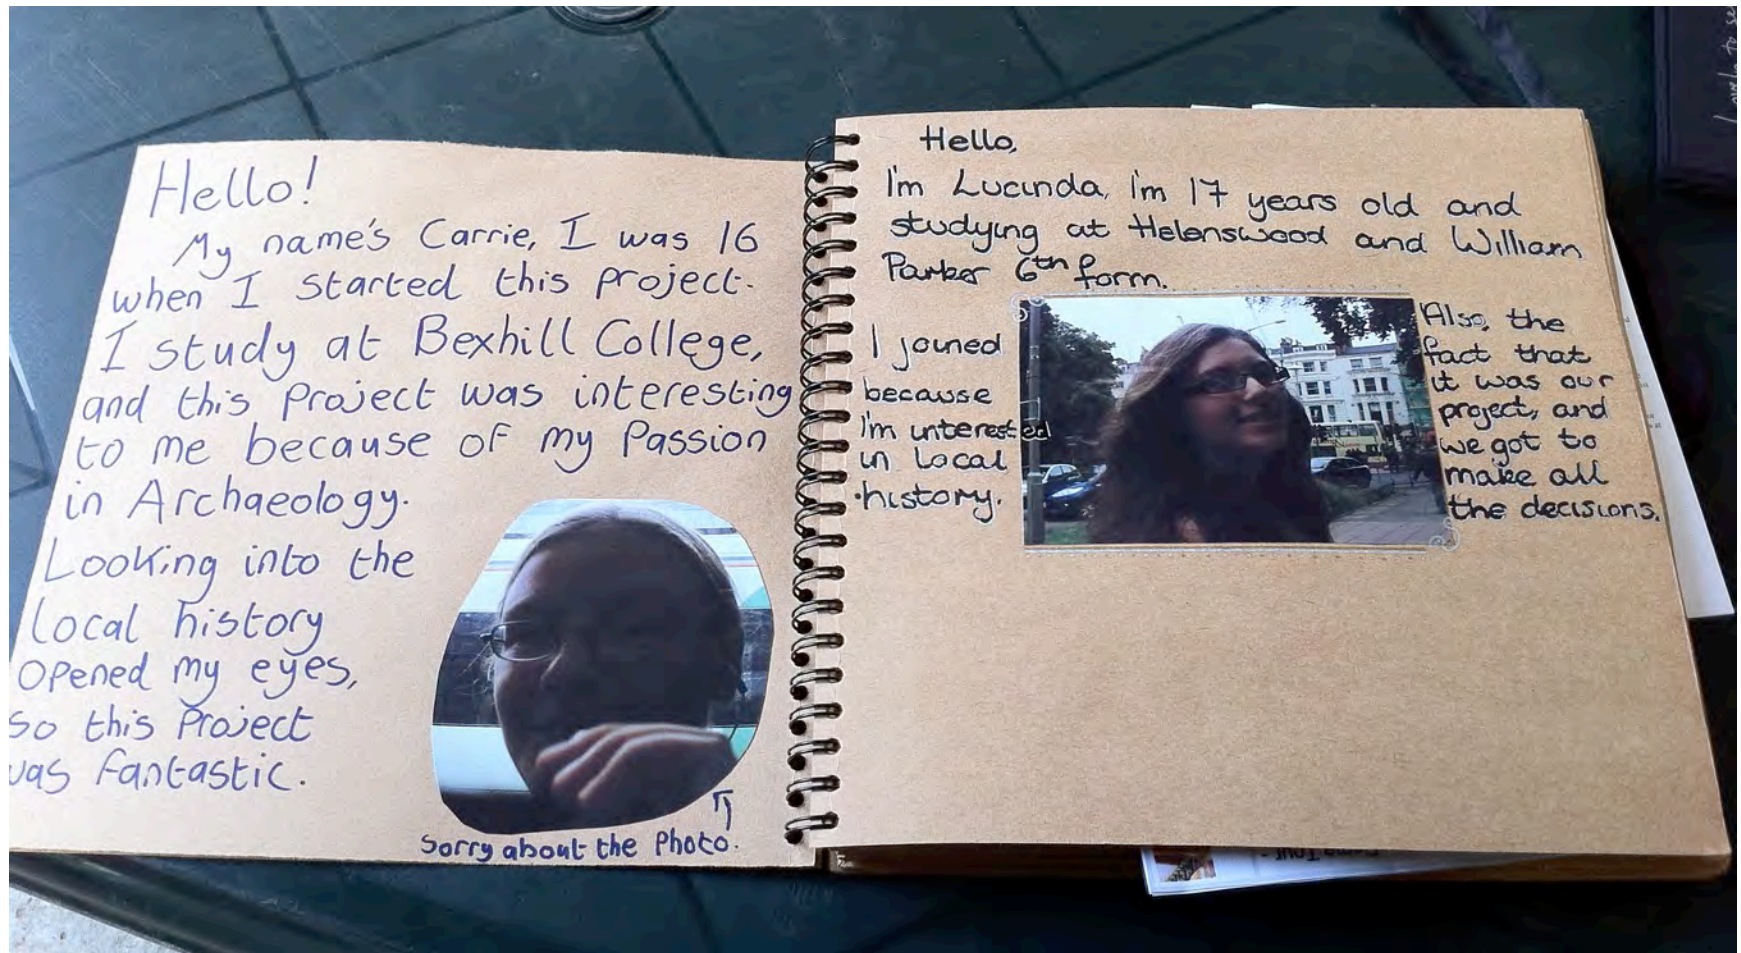 Hello!
My name's Carrie, I was 16
when I started this project.
I study at Bexhill College,
and this Project was interesting
to me because of my Passion
in Archaeology.
Looking into the
local history
opened my eyes,
so this Project
was fantastic.
Sorry about the Photo.
Hello,
I'm Lucinda, I'm 17 years old and
studying at Helenswood and William
Parker 6th form.
I joined
because
I'm interested
in local
history.
Also, the
fact that
it was our
project, and
we got to
make all
the decisions.